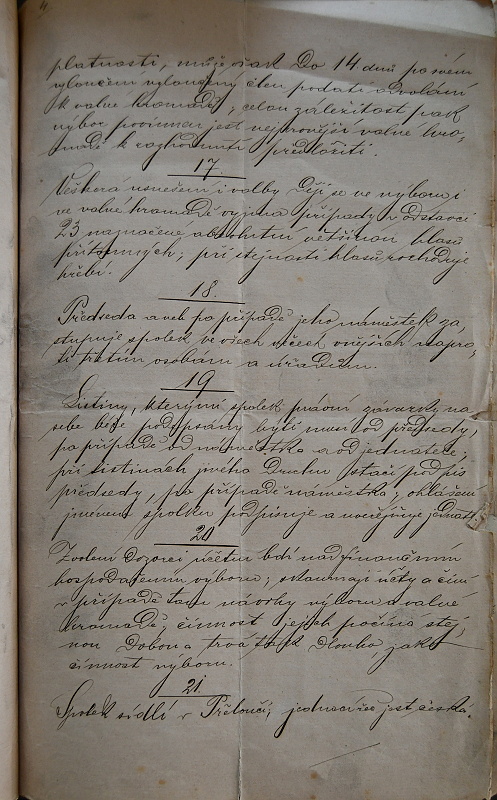 platnosti, může však do 14 dnů po svém
vyloučení vyloučený člen podati odvolání
k valné hromadě; celou záležitost pak
výbor povinen jest nejnovější valné hro-
madě k rozhodnutí předložiti.
17.
Veškerá usnešení i volby dějí se ve výboru i
ve valné hromadě vyjma případy v odstavci
23 naznačené absolutní většinou hlasů
přítomných; při stejnosti hlasů rozhoduje
hřebí.
18.
Předseda aneb po případě jeho náměstek za-
stupuje spolek ve všech věcech vnějších napro-
ti třetím osobám a úřadům.
19
Listiny, kterými spolek právní závazky na
sebe béře podepsány býti musí od předsedy,
po případě od náměstka a od jednatele;
při listinách jiného druhu stačí podpis
předsedy, po případě náměstka; ohlášení
jménem spolku podpisuje a uveřejňuje jednatel
20
Zvolení dozorci účetní bdí nad finančním
hospodařením výboru; zkoumají účty a činí
v případě tom návrhy výboru a valné
hromadě; činnost jejich počíná stej-
nou dobou a trvá tak dlouho jako
činnost výboru.
21.
Spolek sídlí v Přelouči; jednací řeč jest česká.